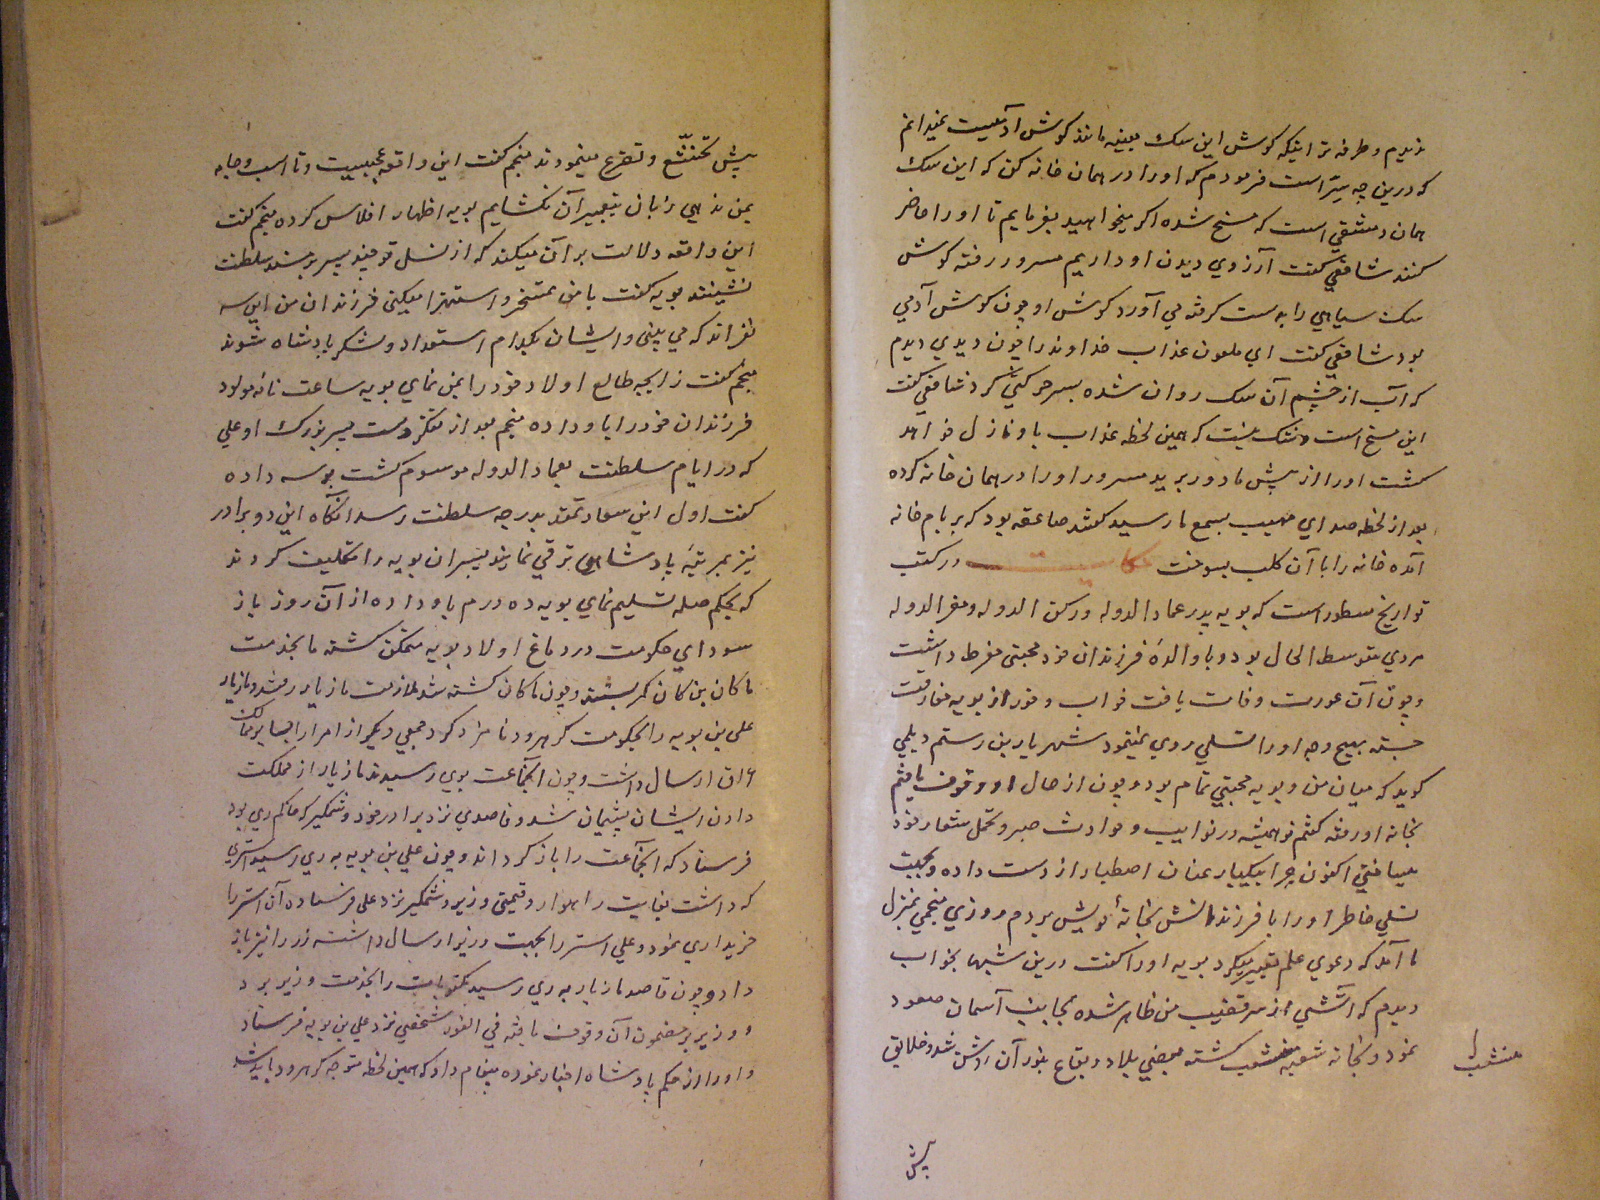 ندیدم و طرفه تر اینکه کوش این سک بعینه مانند کوش آدمیست نمیدانم
که درین چه سرّ است فرمودم که او را در همان خانه کن که این سک
همان دمشقی است که مسخ شده اکر میخواهید بفرمایم تا او را حاضر
کنند شافعی کفت آرزوی دیدن او داریم مسرور رفته کوش
سک سیاهی را بدست کرفته می آورد کوش او چون کوش آدمی
بود شافعی کفت ای ملعون عذاب خداوند را چون دیدی دیدم
که آب از چشم آن سک روان شده بسر حرکتی کرد شافعی کفت
این مسخ است و شک نیست که همین لحظه عذاب باو نازل خواهد
کشت او را از پیش ما دور برید مسرور او را در همان خانه کرده
بعد از لحظه صدای مهیب بسمع ما رسید کفتند صاعقه بود که بر بام خانه
آمده خانه را با آن کلب بسوخت حکایت در کتب
تواریخ مسطور است که بویه پدر عماد الدوله و رکن الدوله و معز الدوله
مردی متوسط الحال بود و با والدهٔ فرزندان خود محبتی مفرط داشت
و چون آن عورت وفات یافت خواب و خور از بویه مفارقت
جسته بهیچ وجه او را تسلی روی نمینمود شهریار بن رستم دیلمی
کوید که میان من و بویه محبتی تمام بود و چون از حال او وقوف یافتم
بخانه او رفته کفتم تو همیشه در نوایب و حوادث صبر و تحمل شعار خود
میساختی اکنون چرا بیکبار عنان اصطبار از دست داده و بجهت
تسلی خاطر او را با فرزندانش بخانهٔ خویش بردم روزی منجمی بمنزل
ما آمد که دعوی علم تعبیر میکرد بویه او را کفت درین شبها بخواب
دیدم که آتشی از سر قضیب من ظاهر شده بجانب آسمان صعود
نمود و بخانه شعبه منشعب کشته بعضی بلاد و بقاع بنور آن روشن شد و خلایق
منشعب
پیش
پیش تخشّع و تضرع مینمودند منجم کفت این واقعه عجیبیست و تا اسب و جامه
بمن ندهی زبان بتعبیر آن نکشایم بویه اظهار افلاس کرده منجم کفت
این واقعه دلالت بر آن میکند که از نسل تو چند پسر بر مسند سلطنت
نشینند بویه کفت با من تمسخر و استهزا میکنی فرزندان من این سه
نفراند که می بینی و ایشان بکدام استعداد و لشکر پادشاه شوند
منجم کفت زایچه طالع اولاد خود را بمن نمای بویه ساعت نامه مولود
فرزندان خود را باو داده منجم بعد از تفکر دست پسر بزرک او علی
که در ایام سلطنت بعماد الدوله موسوم کشت بوسه داده
کفت اول این سعادتمند بدرجه سلطنت رسد آنکاه این دو برادر
نیز بمرتبهٔ پادشاهی ترقی نمایند پسران بویه را تکلیف کردند
که بحکم صله تسلیم نمای بویه ده درم باو داده از آن روز باز
سودای حکومت در دماغ اولاد بویه متمکن کشته ما بخدمت
ماکان بن کان کمر بستند و چون ماکان کشته شد ملازمت مازیار رفتند و مازیار
علی بن بویه را بحکومت کرهرود نامزد کرد و جمعی دیکر از امرا را بسایر ممالک
عراق ارسال داشت و چون آنجماعت بوی رسیدند مازیار از مملکت
دادن ایشان پشیمان شد و قاصدی نزد برادر خود وشمکیر که حاکم ری بود
فرستاد که آنجماعت را باز کرداند و چون علی بن بویه به ری رسید استری
که داشت بغایت راهوار و قیمتی وزیر وشمکیر نزد علی فرستاده آن استر را
خریداری نمود و علی استر را بجهت وزیر ارسال داشته زر را نیز باز
داد و چون قاصد مازیار به ری رسید مکتوبات را بخدمت وزیر برد
و وزیر بر مضمون آن وقوف یافته فی الفور شخصی نزد علی بن بویه فرستاد
و او را از حکم پادشاه اخبار نموده پیغام داد که همین لحظه متوجه کرهرود باید شد